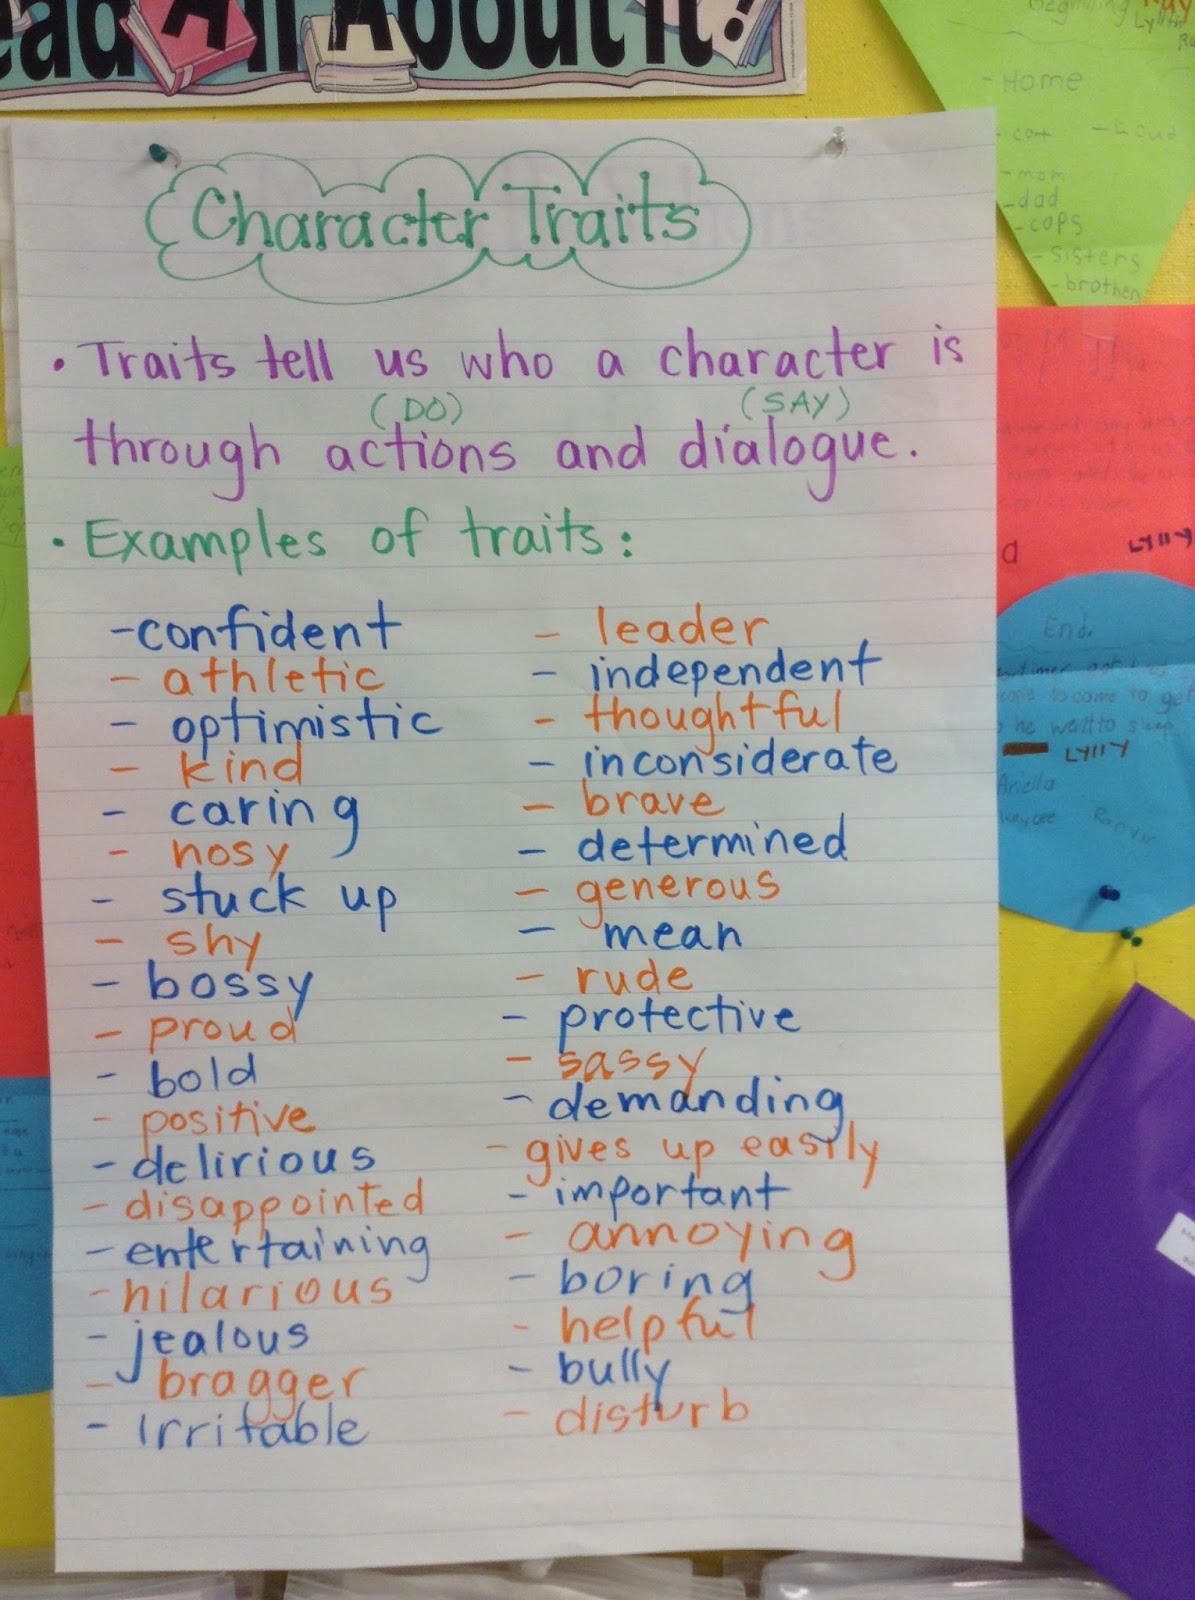 All About It!
Character Traits
• Traits tell us who a character is
(DO) (SAY)
through actions and dialogue.
• Examples of traits:
- confident
- athletic
- optimistic
- kind
- caring
- nosy
- stuck up
- shy
- bossy
- proud
- bold
- positive
- delirious
- disappointed
- entertaining
- hilarious
- jealous
- bragger
- Irritable
- leader
- independent
- thoughtful
- inconsiderate
- brave
- determined
- generous
- mean
- rude
- protective
- sassy
- demanding
- gives up easily
- important
- annoying
- boring
- helpful
- bully
- disturb
- Home
- cat
- mom
- dad
- cops
- sisters
- brother
Lylly
End.
to come to get
he want to sleep
Lylly
Ariella